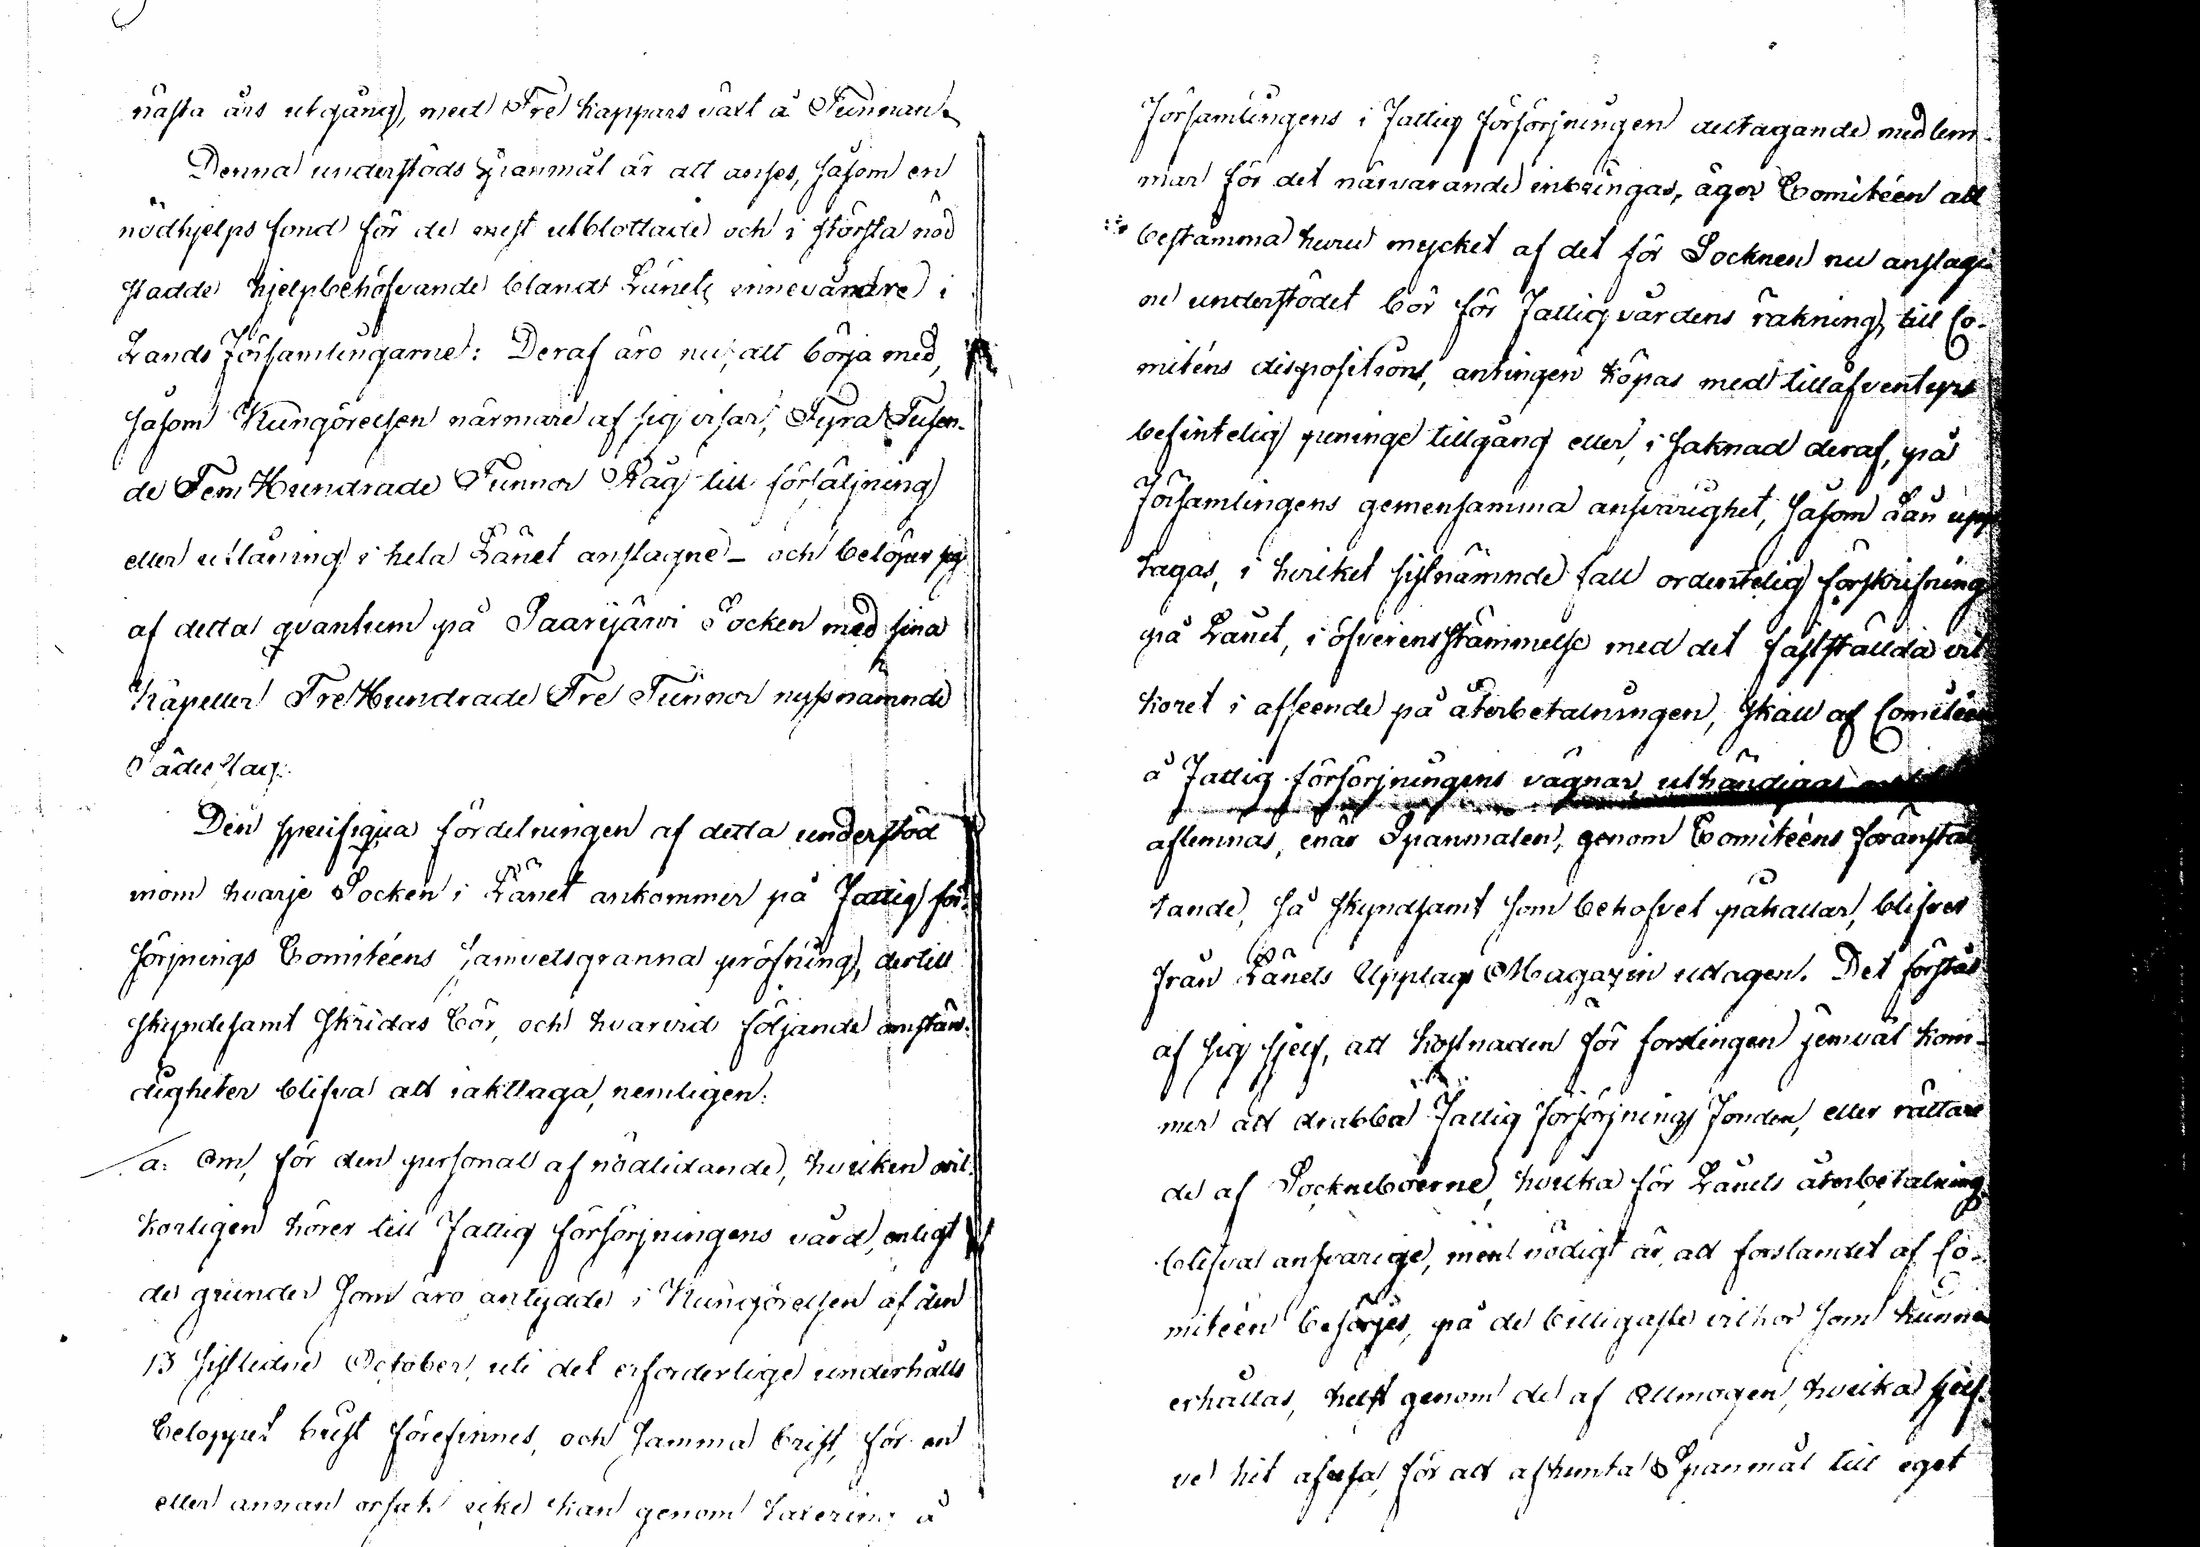 nästa års utgång, med Tre kappars växt å Tunnan.
Denna understöds Spanmål är att anses, såsom en
nödhjelps fond för de mest utblottade och i största nöd
stadde hjelpbehöfvande blandt Länets innevånare i
Lands Församlingarne: Deraf äro nu, att börja med,
såsom Kungörelsen närmare af sig visar, Fyra Tusen-
de Fem Hundrade Tunnor Råg till försäljning
eller utlåning i hela Länet anslagne – och belöper sig
af detta qvantum på Saarijärvi Socken med sina
Kapeller Tre Hundrade Tre Tunnor nyssnämnde
Sädeslag.
Den specifiqua fördelningen af detta understöd
inom hvarje Socken i Länet ankommer på Fattig för-
sörjnings Comitéens samvetsgranna pröfning, dertill
skyndesamt skridas bör, och hvarvid följande omstän-
digheter blifva att iakttaga, nemligen:
a: Om, för den personal af nödlidande, hvilken ovil-
korligen hörer till Fattig försörjningens vård, enligt
de grunder som äro antydde i Kungörelsen af den
13 sistledne October, uti det erforderlige underhålls
beloppet brist förefinnes, och samma brist, för en
eller annan orsak icke kan genom taxering å
Församlingens i Fattig försörjningen deltagande medlem-
mar för det närvarande inbringas, äger Comitéen att
bestämma huru mycket af det för Socknen nu anslag-
ne understödet bör för Fattigvårdens räkning, till Co-
miténs disposition, antingen köpas med tilläfventyrs
befintelig peninge tillgång eller, i saknad deraf, på
Församlingens gemensamma ansvarighet, såsom Lån upp-
tagas, i hvilket sistnämnde fall ordentelig förskrifning
på Lånet, i öfverensstämmelse med det fastställda vil-
koret i afseende på återbetalningen, skall af Comitéen
å Fattig försörjningens vägnar, uthändigas
aflemnas, enär Spanmålen, genom Comitéens föranstal-
tande, så skyndsamt som behofvet påkallar, blifver
från Länets Upplags Magazin uttagen. Det förstås
af sig sjelf, att kostnaden för forslingen jemväl kom-
mer att drabba Fattig Försörjnings Fonden, eller rättare
de af Sockneboerne, hvilka för Lånets återbetalning
blifva ansvarige, men nödigt är, att forslandet af Co-
mitéen besörjes, på de billigaste vilkor som kunna
erhållas, helst genom de af Allmogen, hvilka sjelf-
ve hit afresa, för att afhemta Spanmål till eget